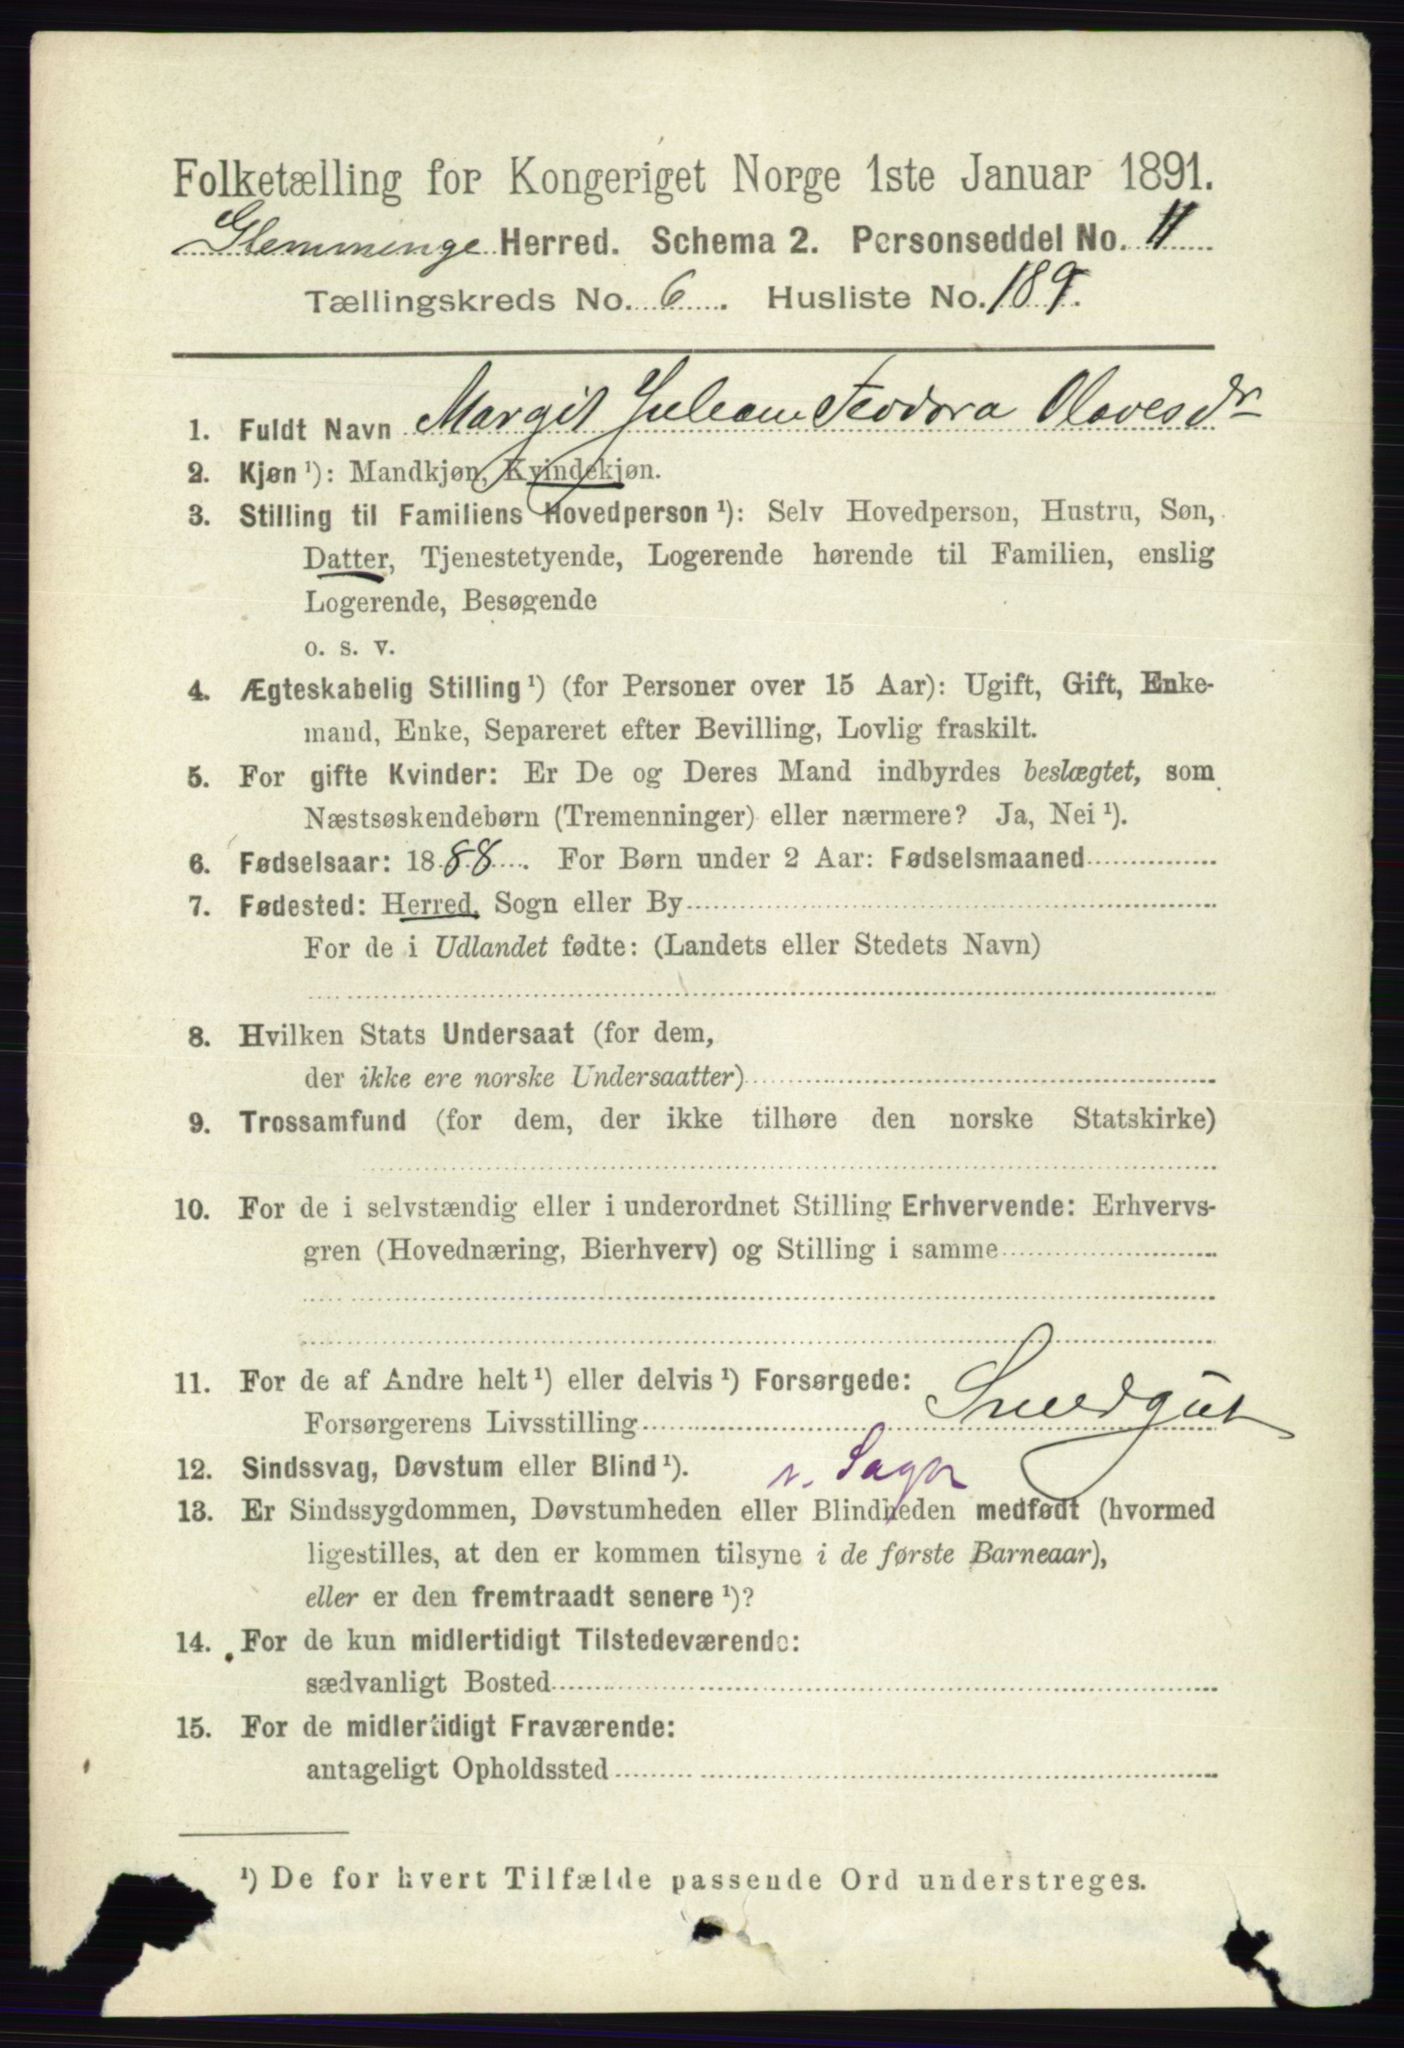 Folketælling for Kongeriget Norge 1ste Januar 1891.
Glemminge Herred. Schema 2. Personseddel No. 11
Tællingskreds No. 6. Husliste No. 189.
1. Fuldt Navn Margit Juliane Teodora Olavesdr
2. Kjøn ¹): Mandkjøn, Kvindekjøn.
3. Stilling til Familiens Hovedperson ¹): Selv Hovedperson, Hustru, Søn,
Datter, Tjenestetyende, Logerende hørende til Familien, enslig
Logerende, Besøgende
o. s. v.
4. Ægteskabelig Stilling ¹) (for Personer over 15 Aar): Ugift, Gift, Enke-
mand, Enke, Separeret efter Bevilling, Lovlig fraskilt.
5. For gifte Kvinder: Er De og Deres Mand indbyrdes beslægtet, som
Næstsøskendebørn (Tremenninger) eller nærmere? Ja, Nei ¹).
6. Fødselsaar: 1888. For Børn under 2 Aar: Fødselsmaaned
7. Fødested: Herred, Sogn eller By
For de i Udlandet fødte: (Landets eller Stedets Navn)
8. Hvilken Stats Undersaat (for dem,
der ikke ere norske Undersaatter)
9. Trossamfund (for dem, der ikke tilhøre den norske Statskirke)
10. For de i selvstændig eller i underordnet Stilling Erhvervende: Erhvervs-
gren (Hovednæring, Bierhverv) og Stilling i samme
11. For de af Andre helt ¹) eller delvis ¹) Forsørgede:
Forsørgerens Livsstilling Smedgut
12. Sindssvag, Døvstum eller Blind ¹). v. Sagbr
13. Er Sindssygdommen, Døvstumheden eller Blindheden medfødt (hvormed
ligestilles, at den er kommen tilsyne i de første Barneaar),
eller er den fremtraadt senere ¹)?
14. For de kun midlertidigt Tilstedeværende:
sædvanligt Bosted
15. For de midlertidigt Fraværende:
antageligt Opholdssted
¹) De for hvert Tilfælde passende Ord understreges.